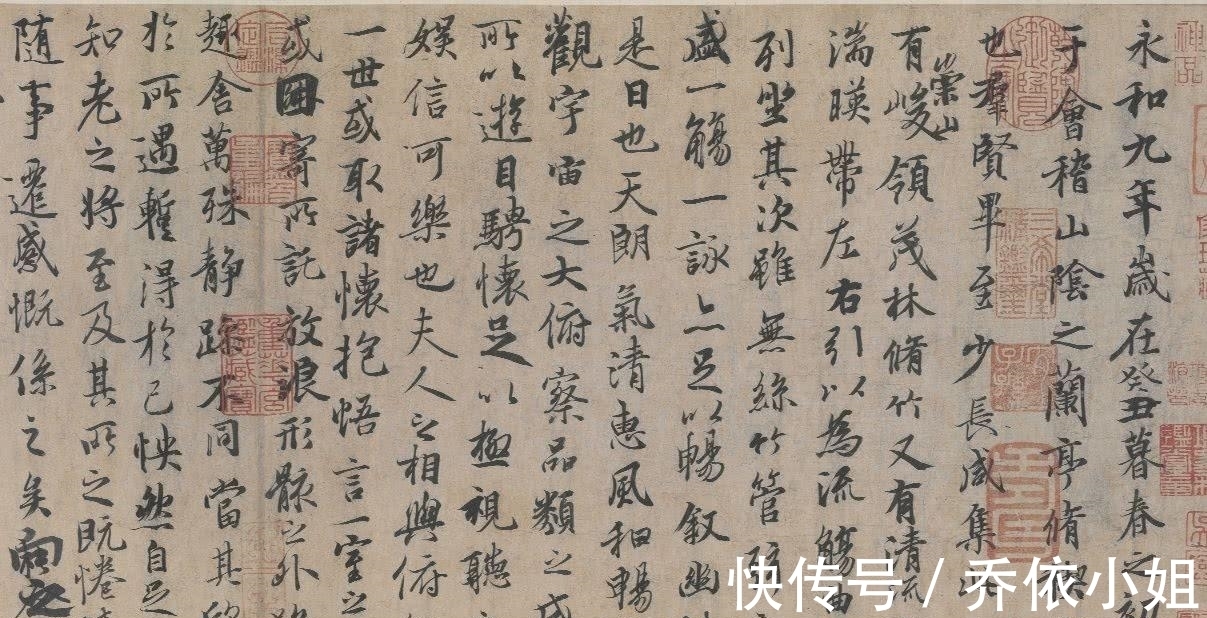 永和九年歲在癸丑暮春之初
于會稽山陰之蘭亭脩稧
也羣賢畢至少長咸集
有崇山峻領茂林脩竹又有清流
湍暎帶左右引以為流觴曲
列坐其次雖無絲竹管
盛一觴一詠亦足以暢叙幽
是日也天朗氣清惠風和暢
觀宇宙之大俯察品類之盛
所以遊目騁懷足以極視聽
娛信可樂也夫人之相與俯
一世或取諸懷抱悟言一室之
或因寄所託放浪形骸之外
趣舍萬殊靜躁不同當其
於所遇蹔得於己怏然自足
知老之將至及其所之既惓
随事遷感慨係之矣向之
快传号 / 乔依小姐